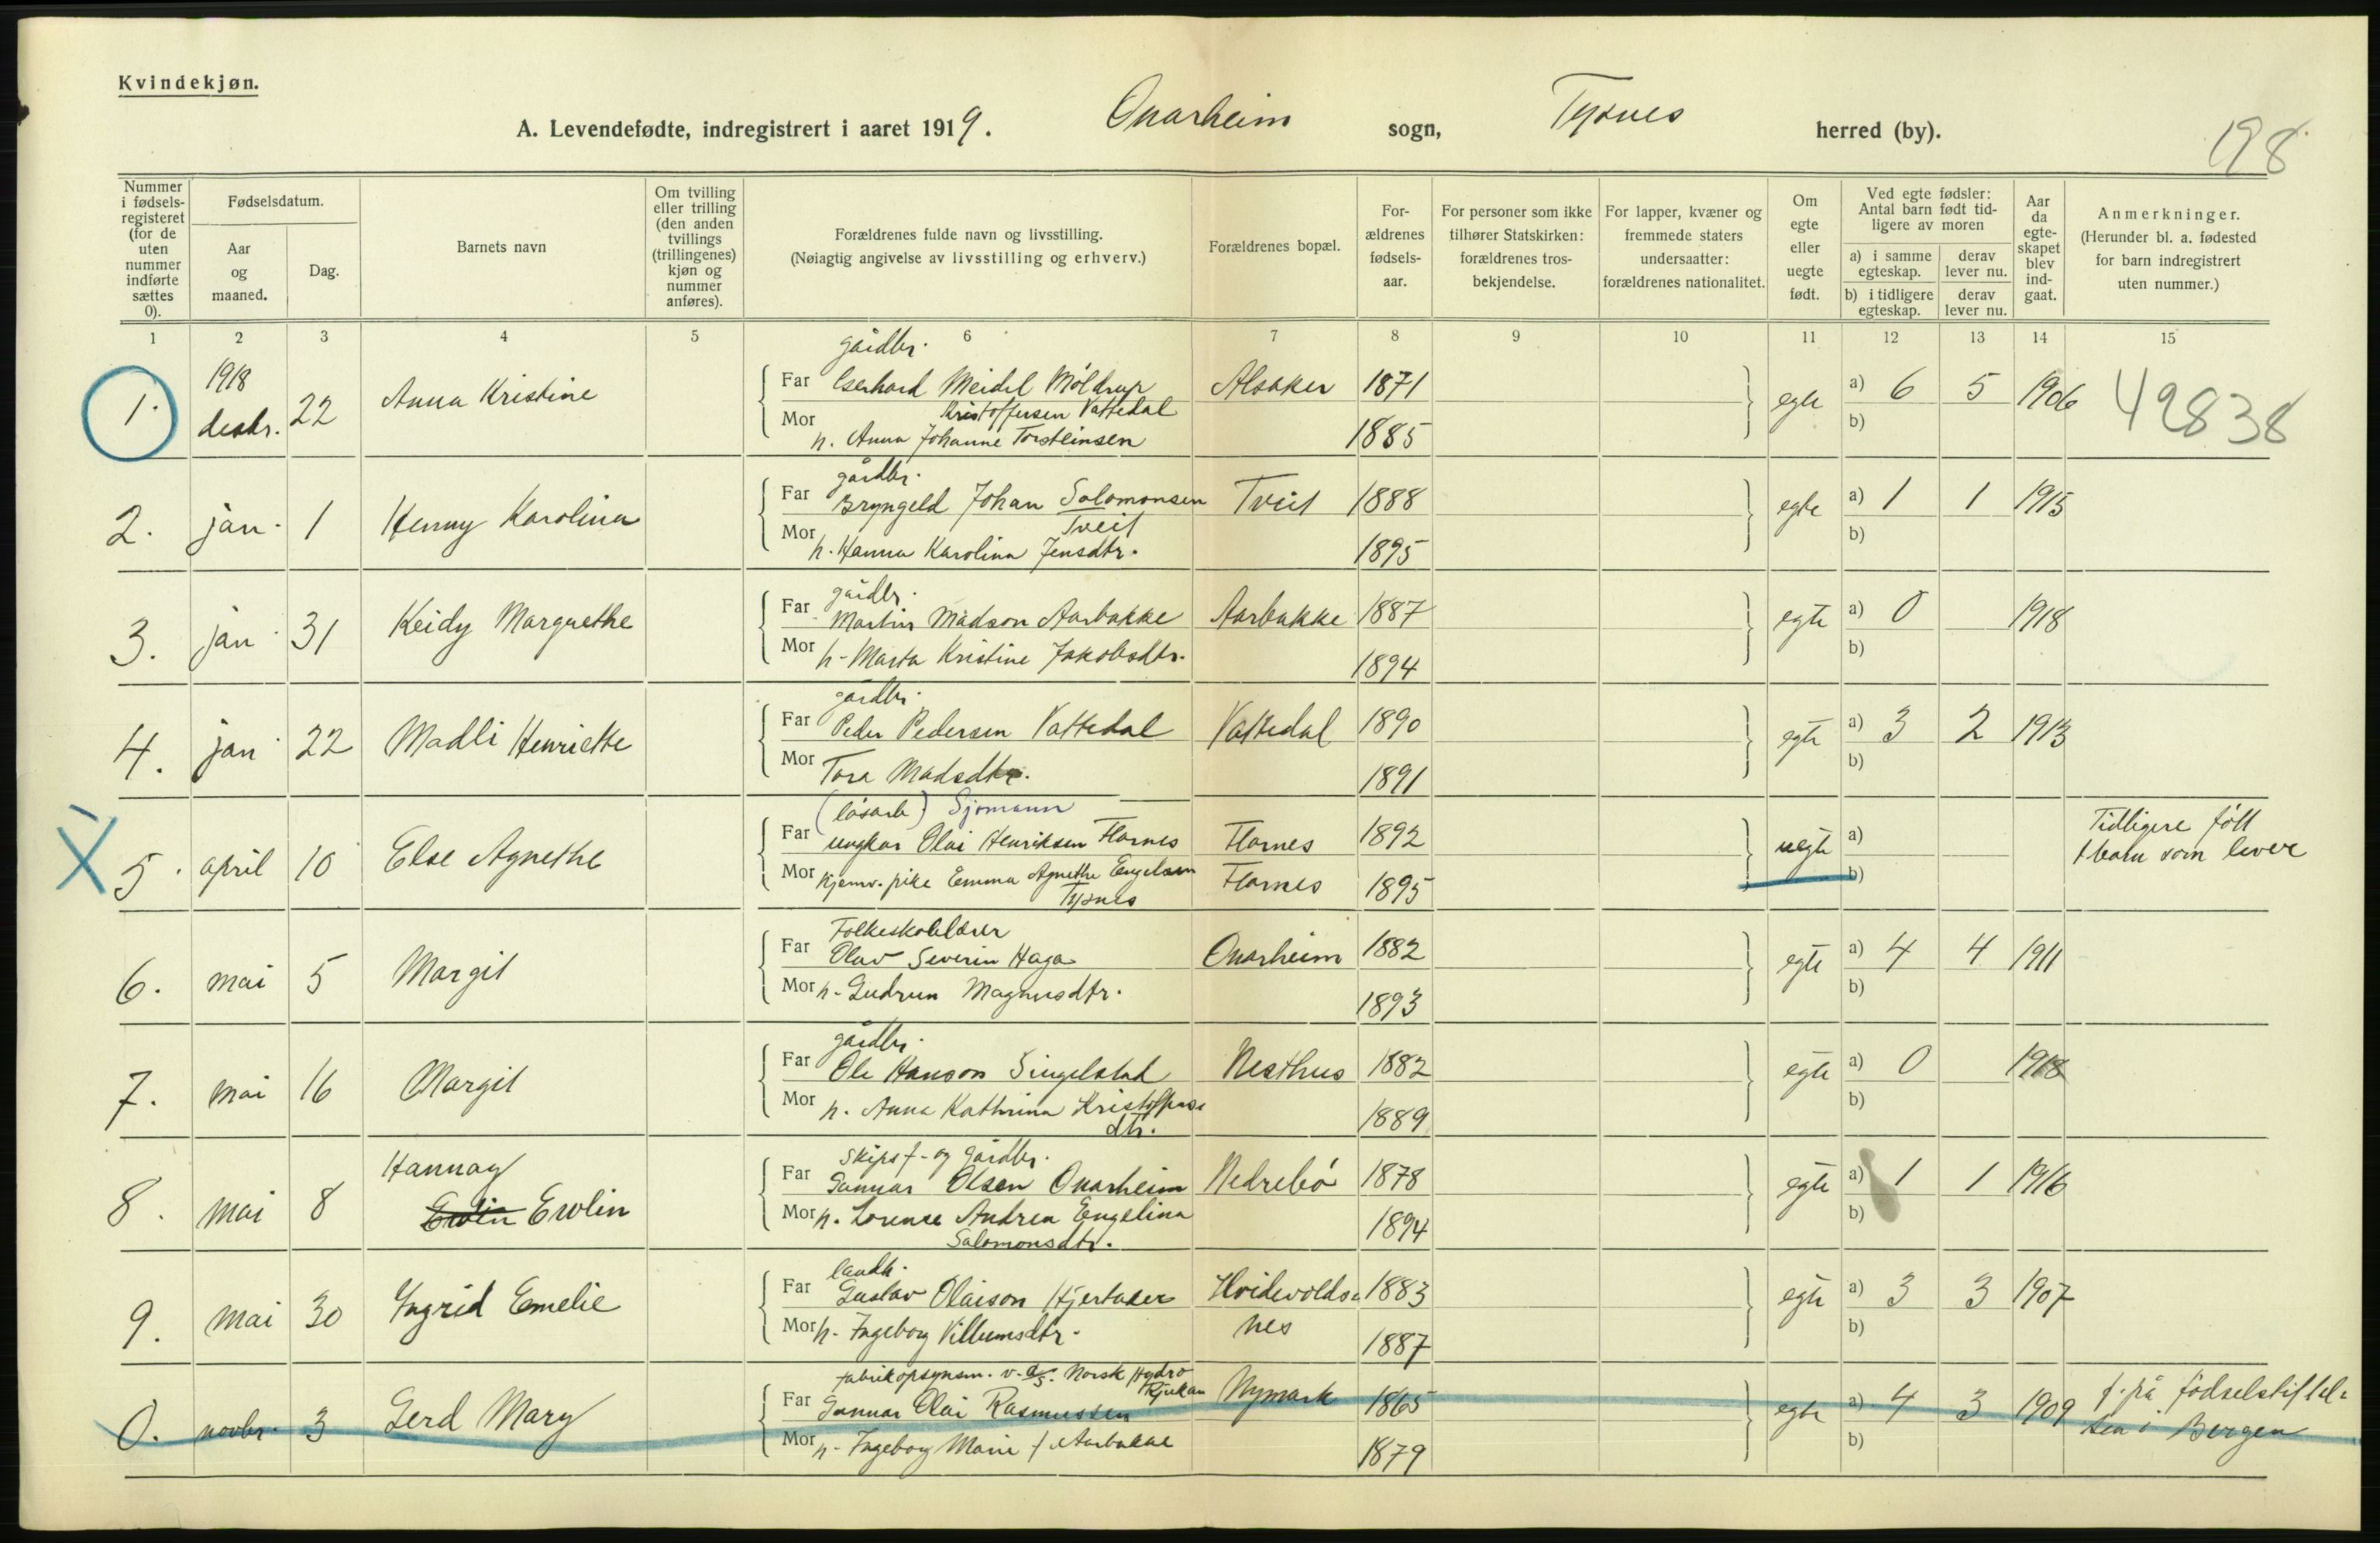 Kvindekjøn.
A. Levendefødte, indregistrert i aaret 1919. Onarheim sogn, Tysnes herred (by).
198
Nummer i fødselsregisteret (for de uten nummer indførte sættes 0).
Fødselsdatum.
Aar og maaned.
Dag.
Barnets navn
Om tvilling eller trilling (den anden tvillings (trillingenes) kjøn og nummer anføres).
Forældrenes fulde navn og livsstilling.
(Nøiagtig angivelse av livsstilling og erhverv.)
Forældrenes bopæl.
Forældrenes fødselsaar.
For personer som ikke tilhører Statskirken: forældrenes trosbekjendelse.
For lapper, kvæner og fremmede staters undersaatter: forældrenes nationalitet.
Om egte eller uegte født.
Ved egte fødsler: Antal barn født tidligere av moren
a) i samme egteskap. derav lever nu.
b) i tidligere egteskap. derav lever nu.
Aar da egteskapet blev indgaat.
Anmerkninger.
(Herunder bl. a. fødested for barn indregistrert uten nummer.)
1 2 3 4 5 6 7 8 9 10 11 12 13 14 15
gårdbr.
1. 1918 desbr. 22 Anna Kristine Far Eserhard Meidel Möldrup Alsaker 1871 egte a) 6 5 1906 42838
Kristoffersen Vattedal
Mor h. Anna Johanne Torsteinsen 1885 b)
gårdbr.
2. jan. 1 Henny Karolina Far Bryngeld Johan Salomonsen Tveit 1888 egte a) 1 1 1915
Tveit
Mor h. Hanna Karolina Jensdtr. 1895 b)
gårdbr.
3. jan. 31 Keidy Margrethe Far Martin Madson Aarbakke Aarbakke 1887 egte a) 0 1918
Mor h. Marta Kristine Jakobsdtr. 1894 b)
gårdbr.
4. jan. 22 Madli Henriette Far Peder Pedersen Vattedal Vattedal 1890 egte a) 3 2 1913
Mor Tora Madsdtr. 1891 b)
(løsarb) Sjømann
X 5. april 10 Else Agnethe Far ungkar Olai Henriksen Flornes Flornes 1892 uegte a) Tidligere født
1 barn som lever
Mor Kjenv. pike Emma Agnethe Engelsen Flornes 1895 b)
Tysnes
Folkeskolelærer
6. mai 5 Margit Far Olav Severin Haga Onarheim 1882 egte a) 4 4 1911
Mor h. Gudrun Magnusdtr. 1893 b)
gårdbr.
7. mai 16 Margit Far Ole Hanson Singelstad Nesthus 1882 egte a) 0 1918
Mor h. Anna Kathrina Kristoffers 1889 b)
dtr.
skipsf. og gårdbr.
8. mai 8 Hannay Far Gunnar Olsen Onarheim Nedrebø 1878 egte a) 1 1 1916
Evolin Evolin
Mor h. Lorense Andrea Engelina 1894 b)
Salomonsdtr.
landh.
9. mai 30 Ingrid Emelie Far Gustav Olaison Hjertaker Hvidevolds 1883 egte a) 3 3 1907
nes
Mor h. Ingeborg Villumsdtr. 1887 b)
fabrikopsynsm. v. a/s. Norsk Hydro
Rjukan
0. novbr. 3 Gerd Mary Far Gunnar Olai Rasmussen Nymark 1865 egte a) 4 3 1909 f. på fødselstiftel-
sen i Bergen
Mor h. Ingeborg Marie f. Aarbakke 1879 b)